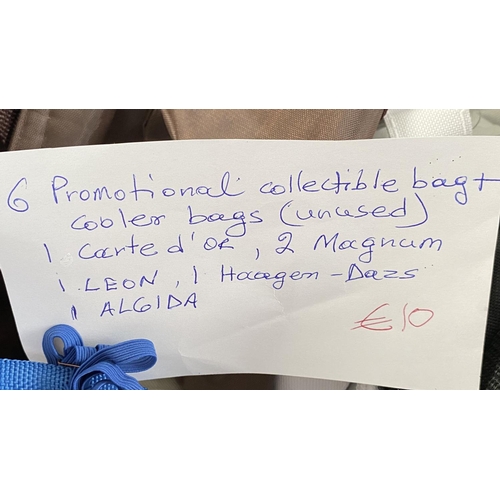 6 Promotional collectible bag +
cooler bags (unused)
1 Carte d'OR, 2 Magnum
1 LEON, 1 Haagen-Dazs
1 ALGIDA
€10